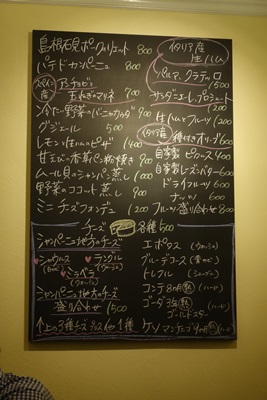 島根石見ポークのリエット 800
パテドカンパーニュ 800
スペイン産 アンチョビと玉ねぎのマリネ 700
冷たい野菜のバーニャカウダ 900
グジェール 500
レモンと生ハムのピザ 1400
甘エビの香草パン粉焼き 900
ムール貝のシャンパン蒸し 1000
野菜のココット蒸し 900
ミニチーズフォンデュ 1200
イタリア産 生ハム
パルマ、クラテッロ
サンダニエーレ、プロシュート 1200
生ハムとフルーツ
イタリア産 種付きオリーブ 600
自家製 ピクルス 400
自家製 レーズンバター 600
ドライフルーツ 600
ナッツ 400
フルーツ盛り合わせ 800
チーズ 各種 500
シャンパーニュ地方のチーズ
シャウルス (白カビ)
ラングル (ウォッシュ)
シャンパーニュ地方のチーズ
盛り合わせ 1500
↑上の3種チーズ プラス 1種
エポワス (ウォッシュ)
ブルーデコース (青カビ)
コンテ 8ヵ月熟 (ハード)
ゴーダ 3年熟 (ハード)
ゴールドスター
ケソ マンチェゴ